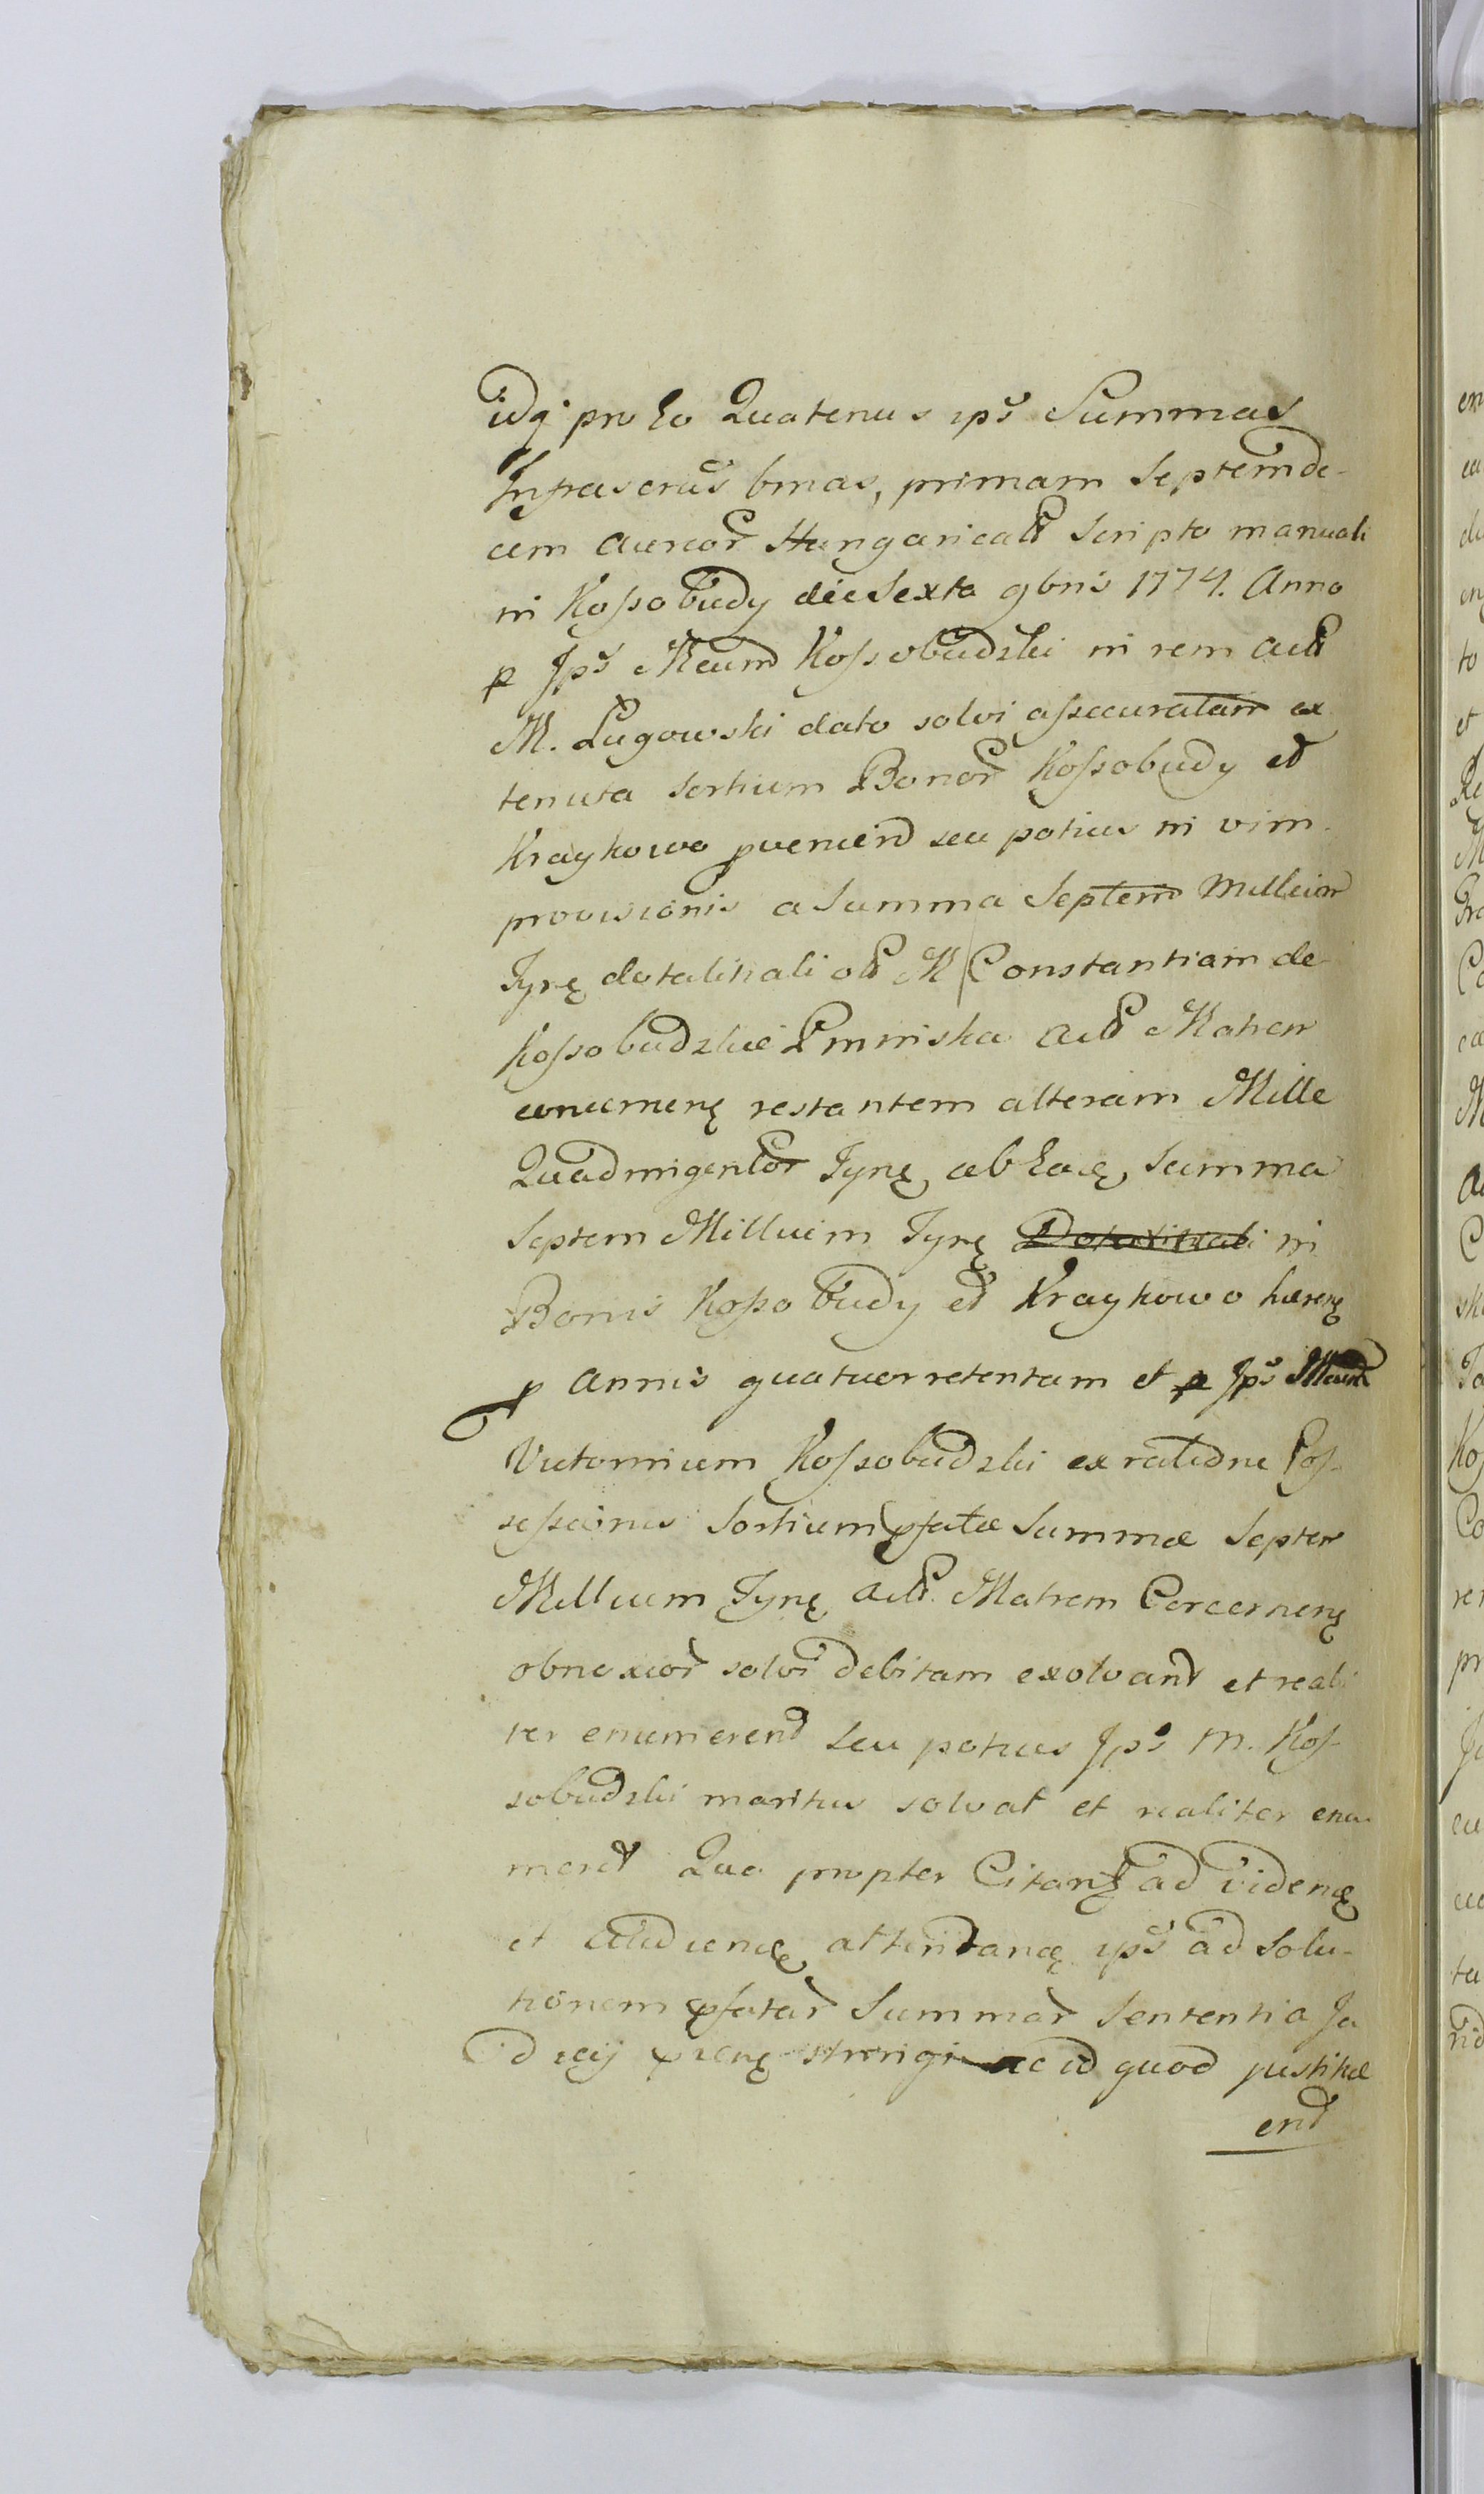 idq pro eo Quatenus ips Summas
Infrascrus binas, primam Septemde-
cem aureor Hungarical Scripto manuali
in Kossobudy die Sexta 9bris 1774. Anno
p Ips Mcum Kossobudzki in rem act
M. Ługowski dato solvi assecuratam ex
tenuta sortium Bonor Kossobudy et
Kraykowo pvenien seu potius in vim
provisionis a Summa Septem Millium
flpnę dotalitiali ol M Constantiam de
Kossobudzkie act Matrem
concernenę restantem alteram Mille
Quadringentor flpnę ab eadę Summa
Septem Millium flpnę Dotalitiali in
Bonis Kossobudy et Kraykowo hærenę
p annis quatuor retentam et p Ips
Victorinum Kossobudzki ex ratione Pos-
sessionis Sortium pfatæ Summæ Septem
Millium flpnę act. Matrem Concernenę
obnoxior solvi debitam exolvant et reali
ter enumerent seu potius Ips M. Kos-
sobudzki maritus solvat et realiter enu
meret Qua propter Citanę ad videnę
et audienę attentanę ips ad Solu-
tionem pfatar Summar Sententia Ju
dicij pñenę stringi ac id quod justitiæ